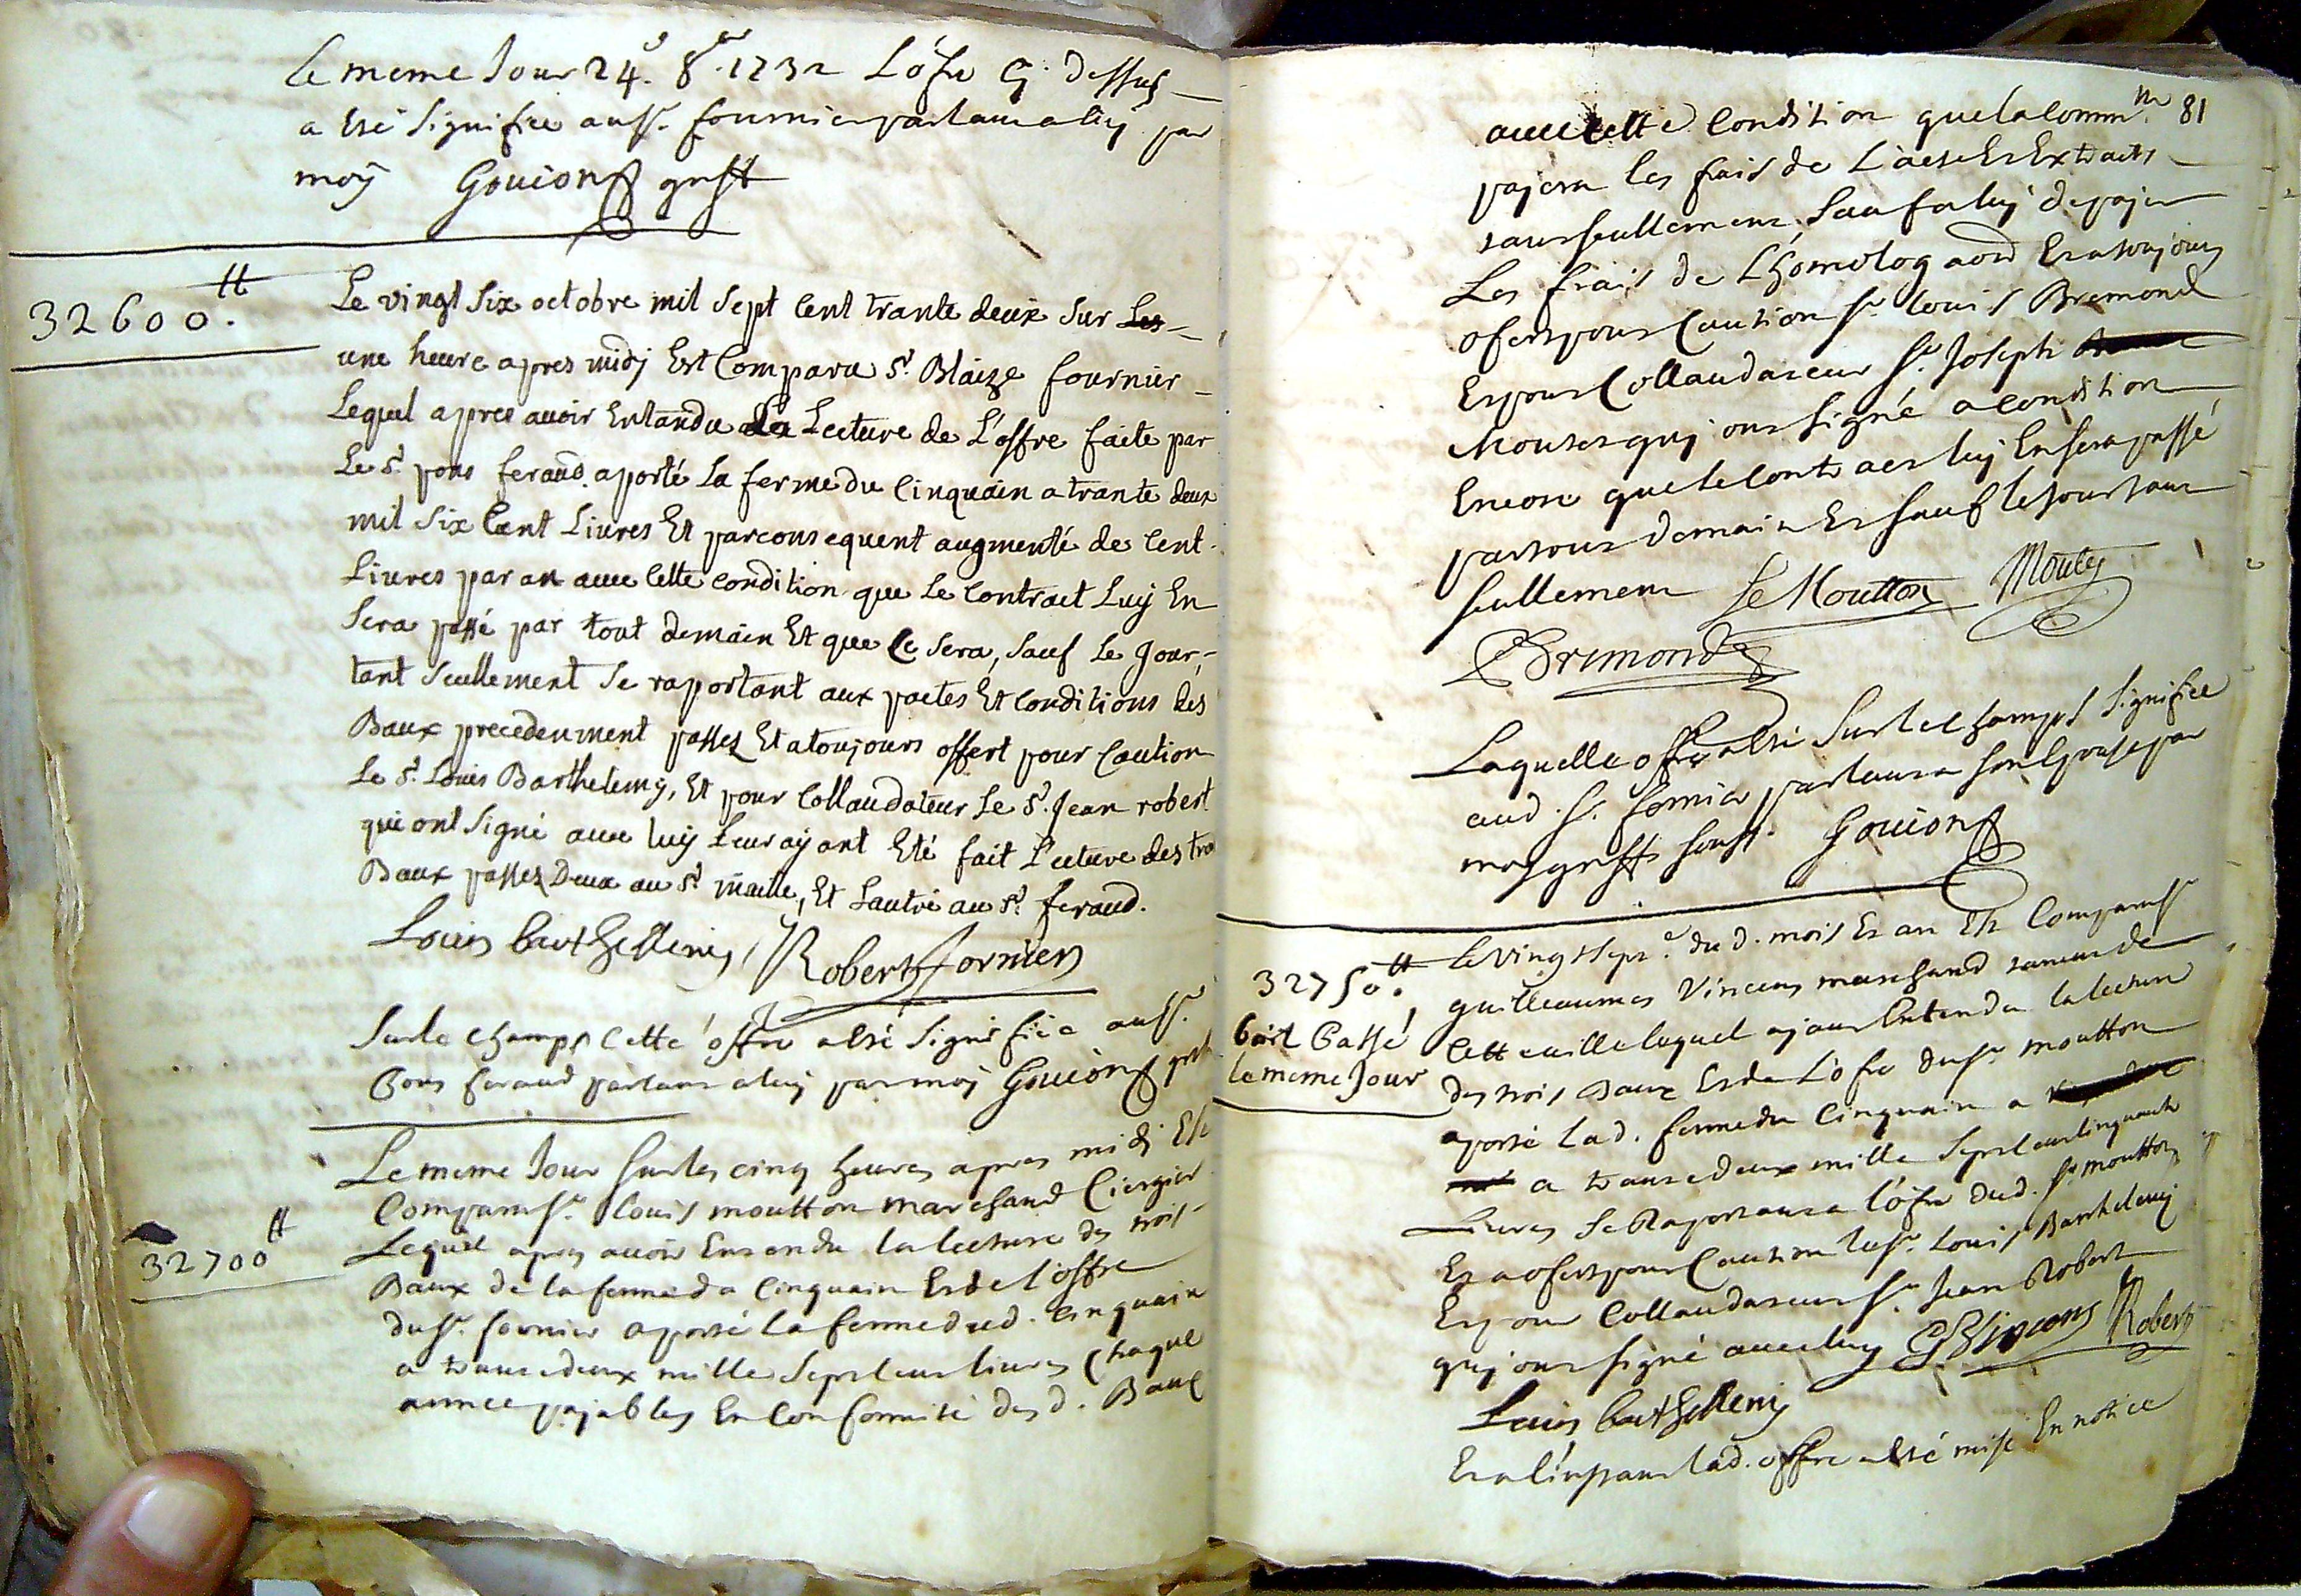 le meme Jour 24e 8bre 1732 L'ofre Cy dessus
a esté signifiée au sr. fournier parlant a luy par
moy Gouion greff
32600 tt.
Le vingt six octobre mil sept cent trante deux sur Les
une heure apres midy Est Comparu sr. Blaize fournier
Lequel apres avoir Entandu la Lecture de L'offre faite par
Le sr. pons feraud aporté La ferme du Cinquain a trante deux
mil six Cent Livres Et parconsequent augmenté de Cent
Livres par an avec Cette Condition que Le Contract Luy En
sera passé par tout demain Et que Ce sera, sauf Le Jour,
tant seullement se raportant aux pactes Et Conditions des
Baux precedenment passez Et a toujours offert pour Caution
Le sr. Louis Barthelemy, Et pour Collaudateur Le sr. Jean robert
qui ont signé avec luy Leur ayant Eté fait Lecture des tro
Baux passez Deux au sr. maille, Et Lautre au sr. feraud.
Louis barthellemy Robert fornier
Sur le champs Cette offre a esté signiffiée au sr.
Pons feraud parlant a luy par moy Gouion greff
Le meme Jour sur les cinq heures apres midy Est
Comparu sr. Louis moutton marchand Ciergier
32700 tt
Lequel apres avoir Entendu la lecture des trois
Baux de la ferme du Cinquain Et de l'offre
du sr. fornier a porté la ferme dud. Cinquain
a trante deux mille sept cent livres Chaque
année payables En Conformité des d. Baux
81
avec cette Condition que la Commté.
payera les frais de L'acte Et Extraits
tant seullement, sauf a luy de payer
Les frais de L'homologaon Et a toujours
ofert pour Caution sr. Louis Bremond
Et pour Collaudateur sr. Joseph
Moutet quy ont signé a condition
Encore que le Contract luy En sera passé
partout demain Et sauf le Jour tant
seullement Le Moutton Moutet
Bremond
Laquelle offre a esté sur le champs signifiée
aud. sr. fornier parlant a son Epouse par
moy greff souss. Gouion
32750 tt.
bail Passé
le meme Jour
le vingt sept e. du d. mois Et an Est Comparu sr
guilleaumes Vincens marchand taneur de
Cette ville lequel ayant Entendu la lecture
des trois Baux Et de L'ofre du sr. moutton
a porté lad. ferme du Cinquain a
a trante deux mille sept cent cinquante
Livres se Raportant a l'ofre dud. sr. moutton
Et a ofert pour Caution le sr. Louis Barthelemy
Et pour Collaudateur sr. Jean Robert
quy ont signé avec luy G Vincens Robert
Louis barthellemy
Et a l'instant lad. offre a esté mise En notice